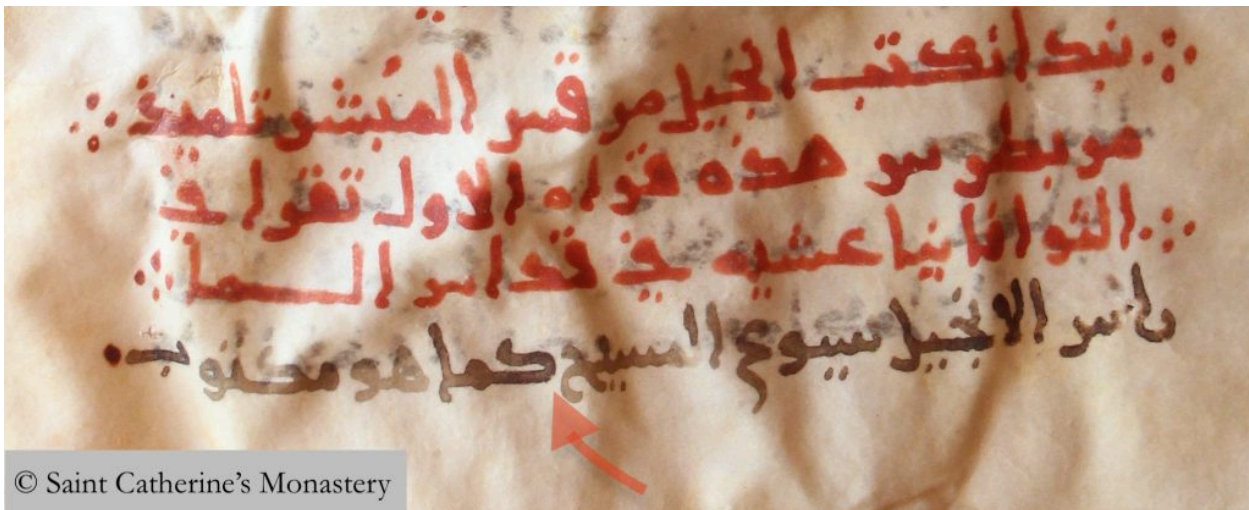 نبدا نكتب انجيل مرقس المبشر تلميذ
من بطرس هذه قراه الاول تقرا في
عشيه في قداس السما
راس الانجيل يسوع المسيح كما هو مكتوب
© Saint Catherine's Monastery